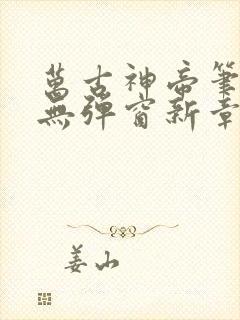 萬古神帝筆
無彈窗新章
姜山